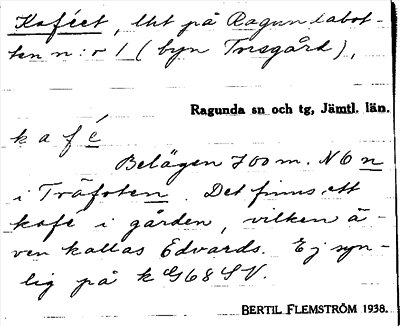 Kaféet, lht på Ragundabot-
ten n:o 1 (byn Torsgård),
Ragunda sn och tg, Jämtl. län.
kafé
Belägen 700 m. NO n
i Träfoten. Det finns ett
kafé i gården, vilken ä-
ven kallas Edvards. Ej syn-
lig på k G68SV.
BERTIL FLEMSTRÖM 1938.